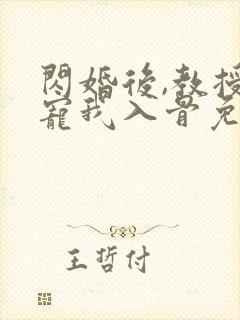 閃婚後,教授
寵我入骨免
王哲付